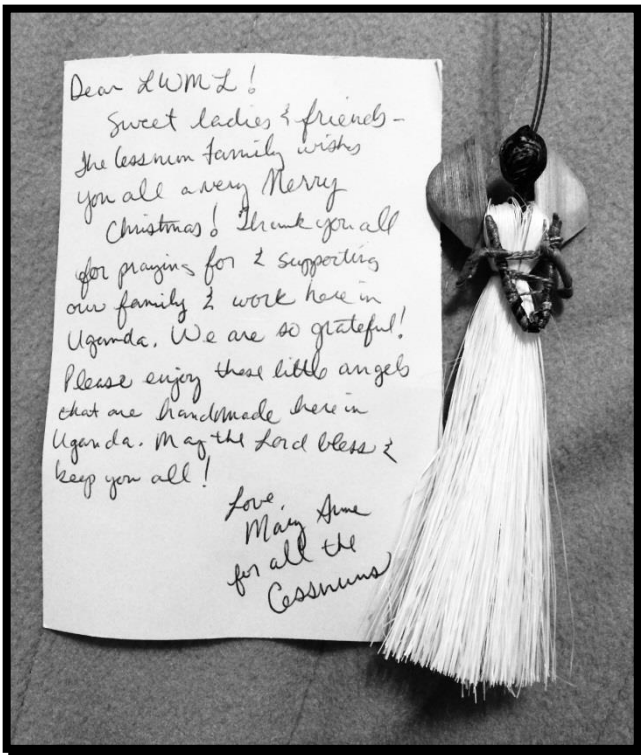 Dear LWML!
Sweet ladies & friends-
The Cessnun Family wishes
you all a very Merry
Christmas! Thank you all
for praying for & supporting
our family & work here in
Uganda. We are so grateful!
Please enjoy these little angels
that are handmade here in
Uganda. May the Lord bless &
keep you all!
Love,
Mary Anne
for all the
Cessnuns